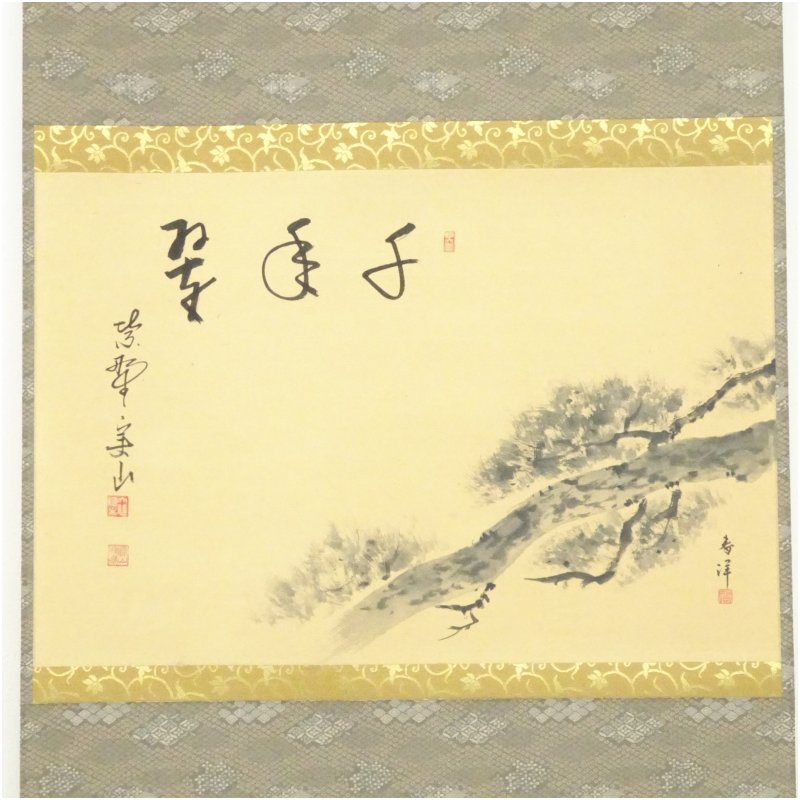 千年翠
紫野 山
春洋